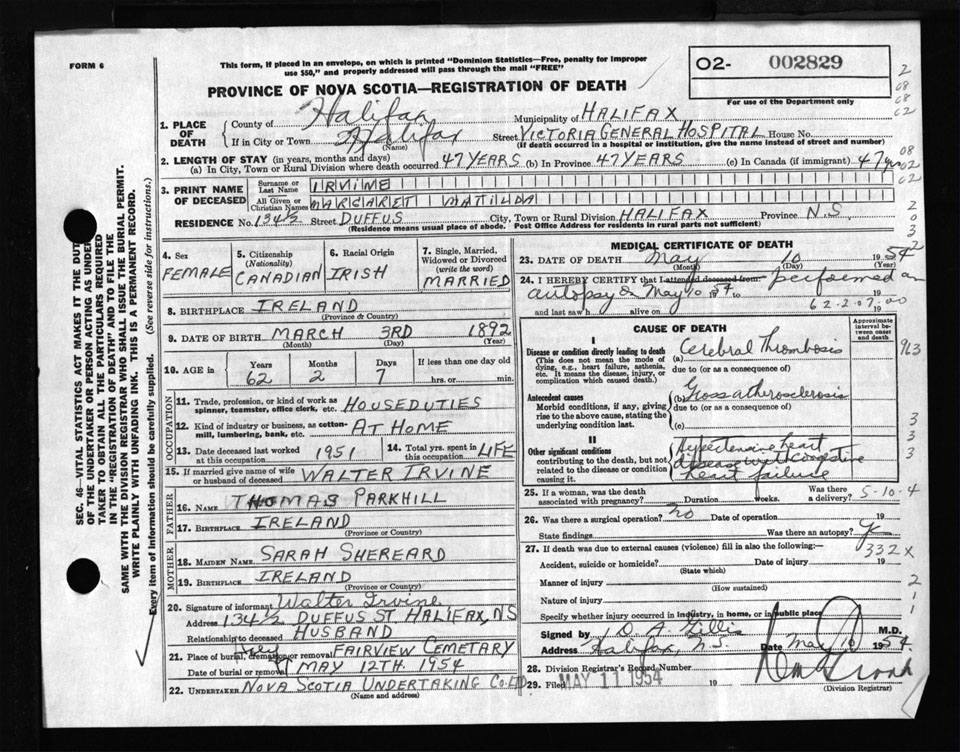 FORM 6
This form, if placed in an envelope, on which is printed "Dominion Statistics—Free, penalty for improper
use $50," and properly addressed will pass through the mail "FREE"
O2- 002829
For use of the Department only
PROVINCE OF NOVA SCOTIA—REGISTRATION OF DEATH
1. PLACE OF DEATH
County of Halifax Municipality of HALIFAX
If in City or Town Halifax Street VICTORIA GENERAL HOSPITAL House No.
(Name) (If death occurred in a hospital or institution, give the name instead of street and number)
2. LENGTH OF STAY (in years, months and days)
(a) In City, Town or Rural Division where death occurred 47 YEARS (b) In Province 47 YEARS (c) In Canada (if immigrant) 47 yrs
3. PRINT NAME OF DECEASED
Surname or Last Name IRVINE
All Given or Christian Names MARGARET MATILDA
RESIDENCE No. 134½ Street DUFFUS City, Town or Rural Division HALIFAX Province N.S.
(Residence means usual place of abode. Post Office Address for residents in rural parts not sufficient)
4. Sex FEMALE
5. Citizenship (Nationality) CANADIAN
6. Racial Origin IRISH
7. Single, Married, Widowed or Divorced (write the word) MARRIED
8. BIRTHPLACE IRELAND
(Province & Country)
9. DATE OF BIRTH MARCH 3RD 1892
(Month) (Day) (Year)
10. AGE in Years 62 Months 2 Days 7 If less than one day old hrs. or min.
OCCUPATION
11. Trade, profession, or kind of work as spinner, teamster, office clerk, etc. HOUSE DUTIES
12. Kind of industry or business, as cotton-mill, lumbering, bank, etc. AT HOME
13. Date deceased last worked at this occupation 1951
14. Total yrs. spent in this occupation LIFE
15. If married give name of wife or husband of deceased WALTER IRVINE
FATHER
16. NAME THOMAS PARKHILL
17. BIRTHPLACE IRELAND
(Province or Country)
MOTHER
18. MAIDEN NAME SARAH SHEREARD
19. BIRTHPLACE IRELAND
(Province or Country)
20. Signature of informant Walter Irvine
Address 134½ DUFFUS ST. HALIFAX, NS
Relationship to deceased HUSBAND
21. Place of burial, cremation or removal FAIRVIEW CEMETARY
Date of burial or removal MAY 12TH 1954
22. UNDERTAKER NOVA SCOTIA UNDERTAKING CO. LTD
(Name and address)
MEDICAL CERTIFICATE OF DEATH
23. DATE OF DEATH May 10 1954
(Month) (Day) (Year)
24. I HEREBY CERTIFY that I attended deceased from: performed an
autopsy May 10 1954 19
and last saw h alive on 62-2-07-00 19
CAUSE OF DEATH
Approximate interval between onset and death
I
Disease or condition directly leading to death (a) Cerebral Thrombosis
(This does not mean the mode of dying, e.g., heart failure, asthenia, etc. It means the disease, injury, or complication which caused death.)
due to (or as a consequence of)
Antecedent causes (b) Gross atherosclerosis
Morbid conditions, if any, giving rise to the above cause, stating the underlying condition last.
due to (or as a consequence of)
(c)
II
Other significant conditions
contributing to the death, but not related to the disease or condition causing it.
Hypertensive heart
disease with congestive
heart failure
25. If a woman, was the death associated with pregnancy? Duration weeks. Was there a delivery? 5-10-4
26. Was there a surgical operation? no Date of operation 19
State findings Was there an autopsy?
27. If death was due to external causes (violence) fill in also the following: 332 X
Accident, suicide or homicide? Date of injury 19
(State which)
Manner of injury
(How sustained)
Nature of injury
Specify whether injury occurred in industry, in home, or in public place
Signed by A. Gillis M.D.
Address Halifax, N.S. Date May 10 1954
28. Division Registrar's Record Number
29. Filed MAY 11 1954 19
(Division Registrar)
SEC. 46—VITAL STATISTICS ACT MAKES IT THE DUTY
OF THE UNDERTAKER OR PERSON ACTING AS UNDER-
TAKER TO OBTAIN ALL THE PARTICULARS REQUIRED
IN THE "REGISTRATION OF DEATH" AND TO FILE THE
SAME WITH THE DIVISION REGISTRAR WHO SHALL ISSUE THE BURIAL PERMIT.
WRITE PLAINLY WITH UNFADING INK. THIS IS A PERMANENT RECORD.
Every item of information should be carefully supplied. (See reverse side for instructions.)
2
08
08
02
08
02
02
2
0
3
2
963
3
3
3
2
1
1